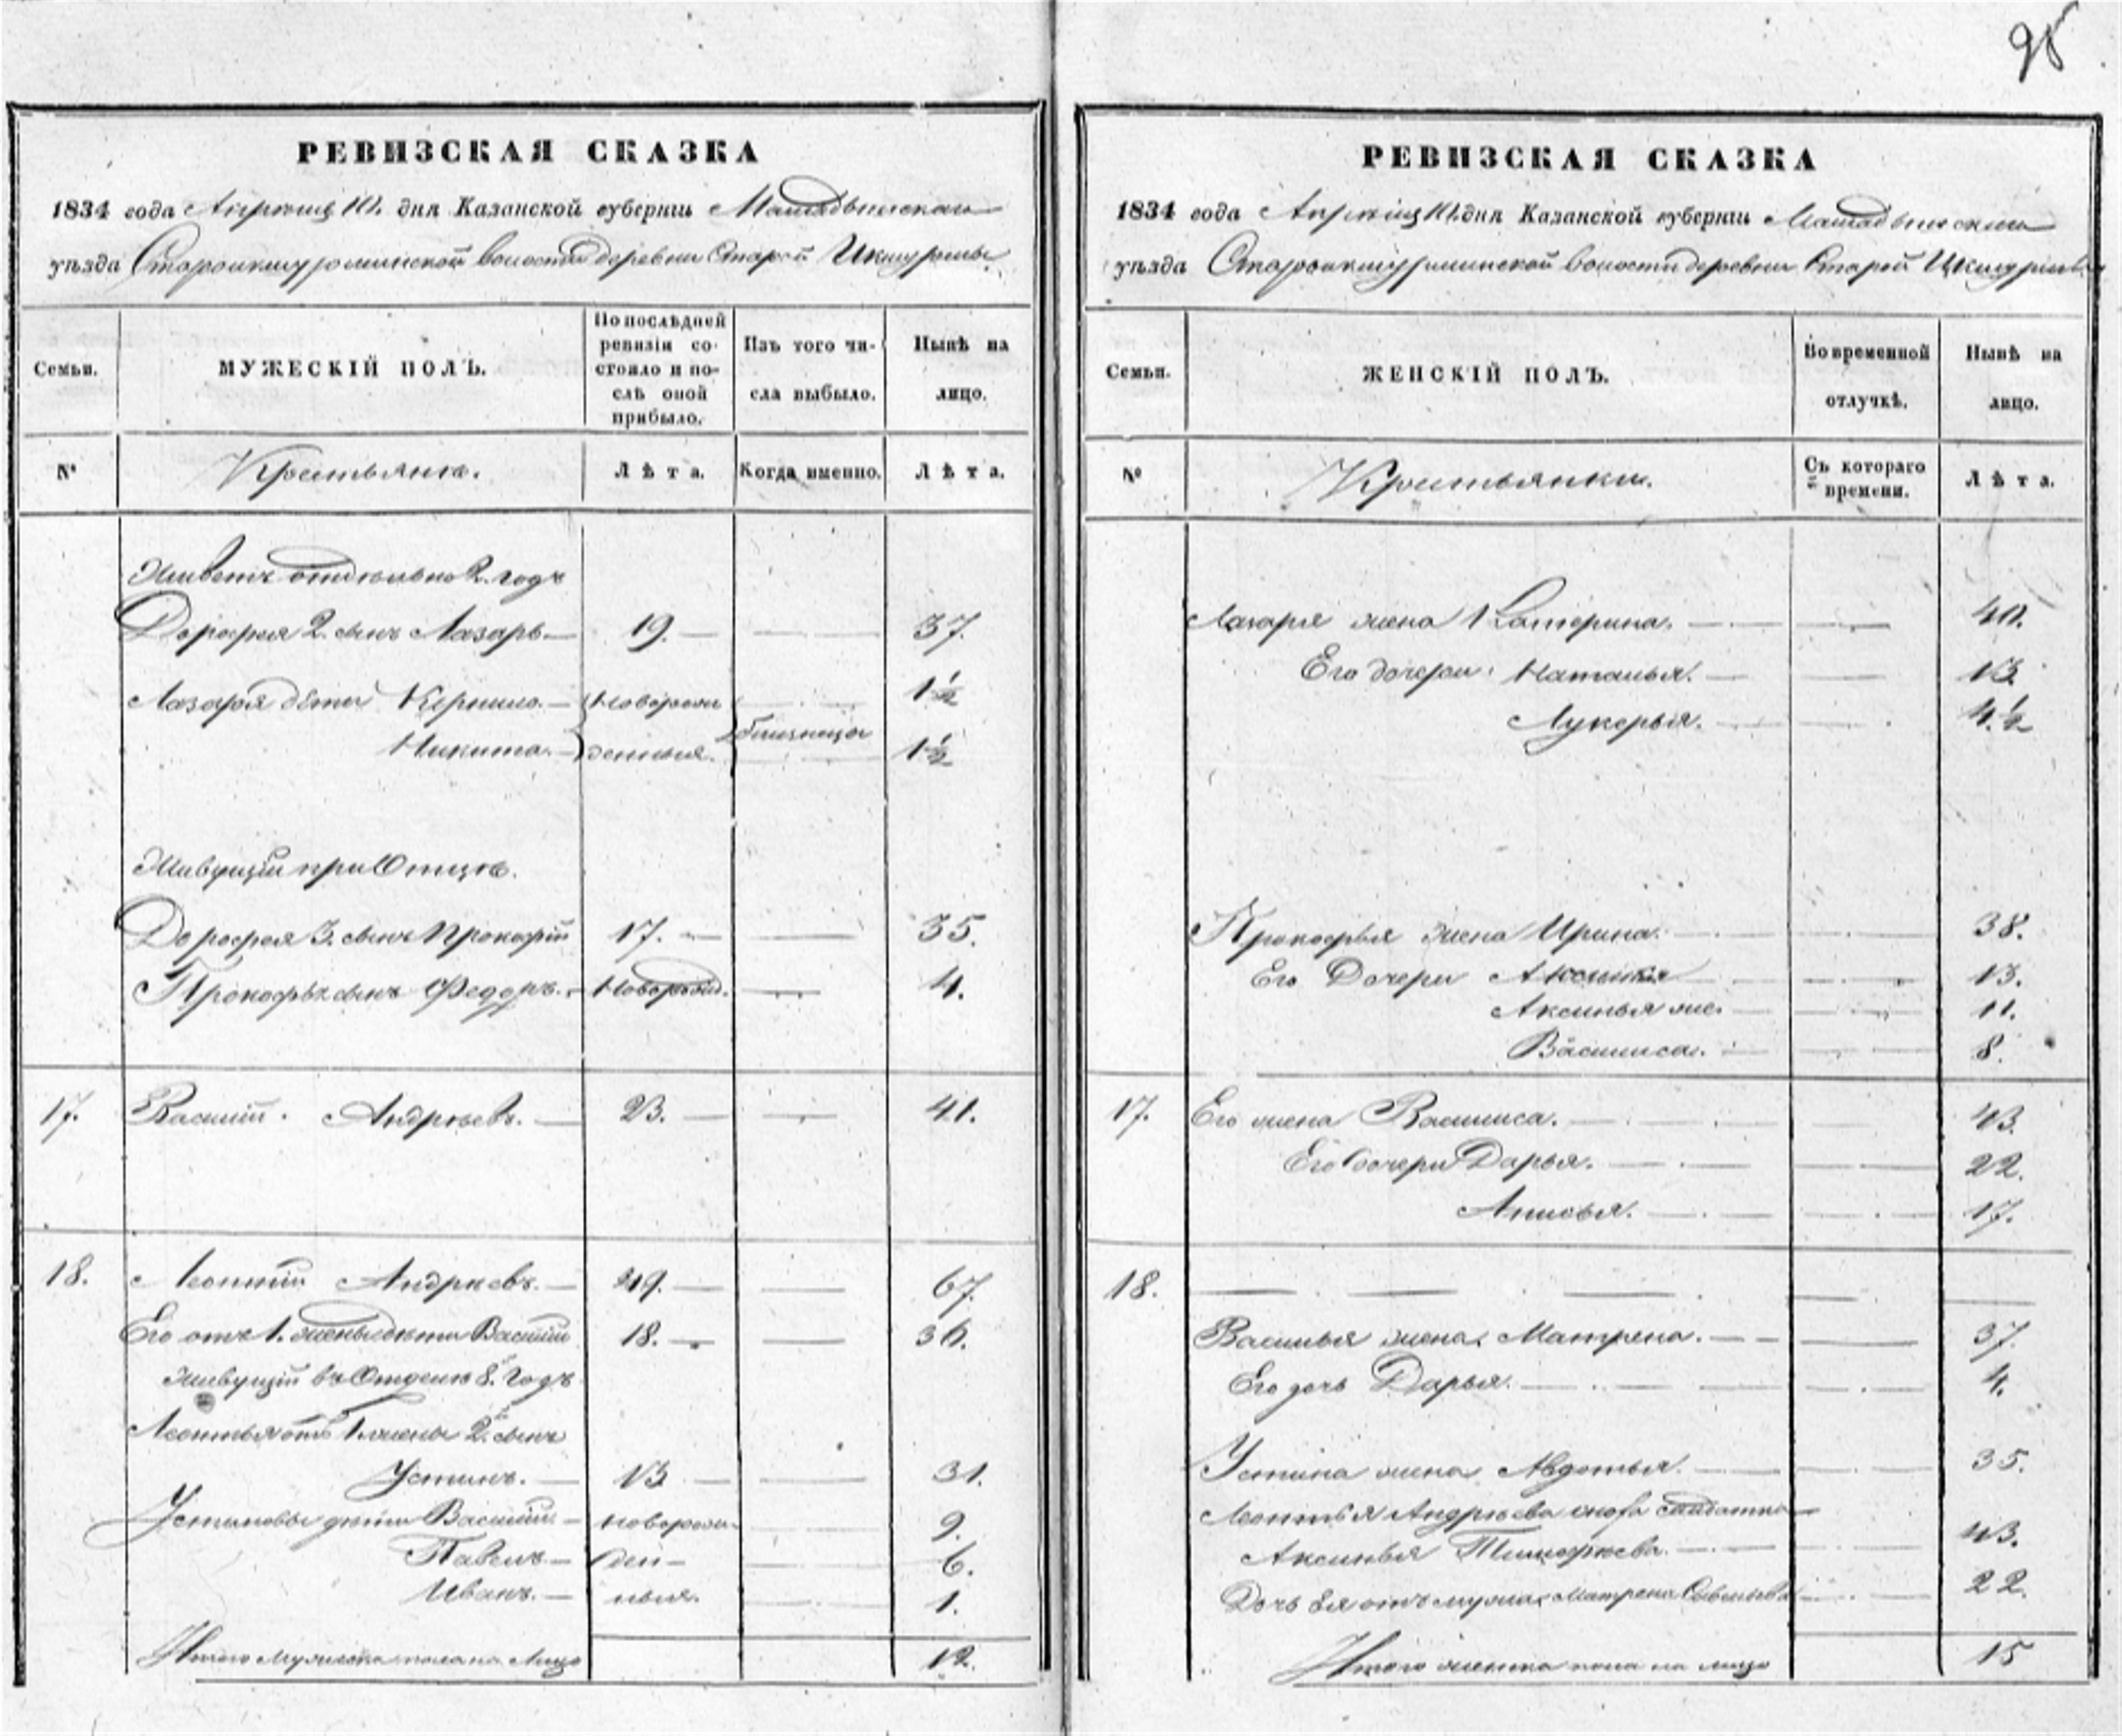 95
РЕВИЗСКАЯ СКАЗКА
1834 года Апреля дня Казанской губернiи Мамадышскаго
уѣзда Староикшурминской волости деревни Старой Икшурмы
Семьи.
МУЖЕСКIЙ ПОЛЪ.
По послѣдней ревизiи состояло и послѣ оной прибыло.
Изъ того числа выбыло.
Нынѣ на лицо.
№
Крестьяне.
Лѣта.
Когда именно.
Лѣта.
Живетъ отдельно 2. годъ
Дорофея 2. сынъ Лазарь 19. 37.
Лазаря дѣти Кирило. Новорож 1½
Никита. денныя. близнецы 1½
Живущiй при Отцѣ.
Дорофея 3. сынъ Прокофiй 17. 35.
Прокофья сынъ Федоръ. Новорожд. 4.
17. Василiй Андрѣевъ. 23. 41.
18. Леонтiй Андрѣевъ. 49. 67.
Его отъ 1. жены дѣти Василiй 18. 36.
Живущiй въ Отделѣ 8. Годъ
Леонтья отъ 1 жены 2. сынъ
Устинъ. 13 31.
Устиновы дѣти Василiй. новорож 9.
Павелъ ден 6.
Иванъ. ныя. 1.
Итого Мужеска пола на Лицо 12.
РЕВИЗСКАЯ СКАЗКА
1834 года Апреля дня Казанской губернiи Мамадышскаго
уѣзда Староикшурминской волости деревни Старой Икшурмы
Семьи.
ЖЕНСКIЙ ПОЛЪ.
Во временной отлучкѣ.
Нынѣ на лицо.
№
Крестьянки.
Съ котораго времени.
Лѣта.
Лазаря жена Катерина. 40.
Его дочери Наталья. 13.
Лукерья. 4½
Прокофья жена Ирина. 38.
Его Дочери 13.
Аксинья же. 11.
Васииса. 8.
17. Его жена Васииса. 43.
Его дочери Дарья. 22.
Анисья. 17.
18.
Василья жена Матрена. 37.
Его дочь Дарья. 4.
Устина жена Авдотья. 35.
Леонтья Андрѣева сноха салдатка
Аксинья Тимофѣева. 43.
Дочь Ея отъ мужа Матрена 22.
Итого женска пола на лицо 15